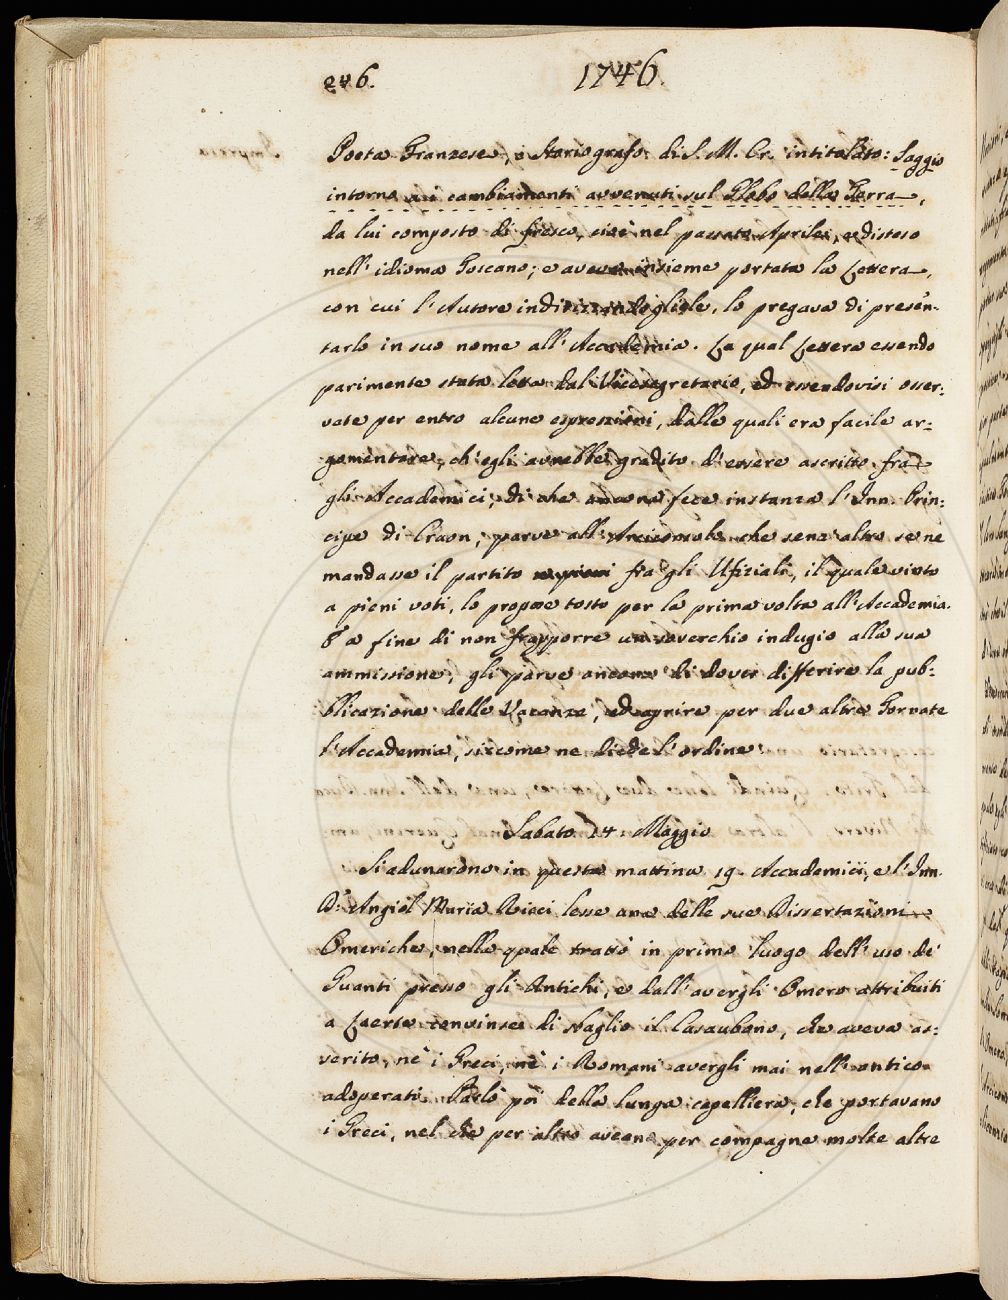 246. 1746.
Poeta Franzese, e Storiografo di S. M. Cr. intitolato: Saggio
intorno ai cambiamenti avvenuti sul Globo della Terra,
da lui composto di fresco, cioè nel passato Aprile, e disteso
nell' idioma Toscano; e aveva insieme portata la Lettera,
con cui l'Autore indirizzandogliele, lo pregava di presen-
tarlo in suo nome all' Accademia. La qual Lettera essendo
parimente stata letta dal Vicesegretario, ed essendovisi osser-
vate per entro alcune espressioni, dalle quali era facile ar-
gomentare, ch'egli avrebbe gradito d'essere ascritto fra
gli Accademici, di che ancora fece instanza l'Inn. Prin-
cipe di Craon; parve all' Arciconsolo che senz' altro se ne
mandasse il partito fra gli Ufiziali, il quale vinto
a pieni voti, lo propose tosto per la prima volta all' Accademia.
E a fine di non frapporre un soverchio indugio alla sua
ammissione, gli parve ancora di dover differire la pub-
blicazione delle Vacanze, ed aprire per due altre Tornate
l'Accademia, siccome ne diede l'ordine.
Sabato 14. Maggio
Si adunarono in questa mattina 19. Accademici, e l'Inn.
D.r Angiol Maria Ricci lesse una delle sue Dissertazioni
Omeriche, nella quale trattò in primo luogo dell' uso de'
Guanti presso gli Antichi, e dall' avergli Omero attribuiti
a Laerte convinse di sbaglio il Casaubono, che aveva as-
serito, nè i Greci, nè i Romani avergli mai nell' antico
adoperati. Parlò poi della lunga capelliera, che portavano
i Greci, nel che per altro aveano per compagne molte altre